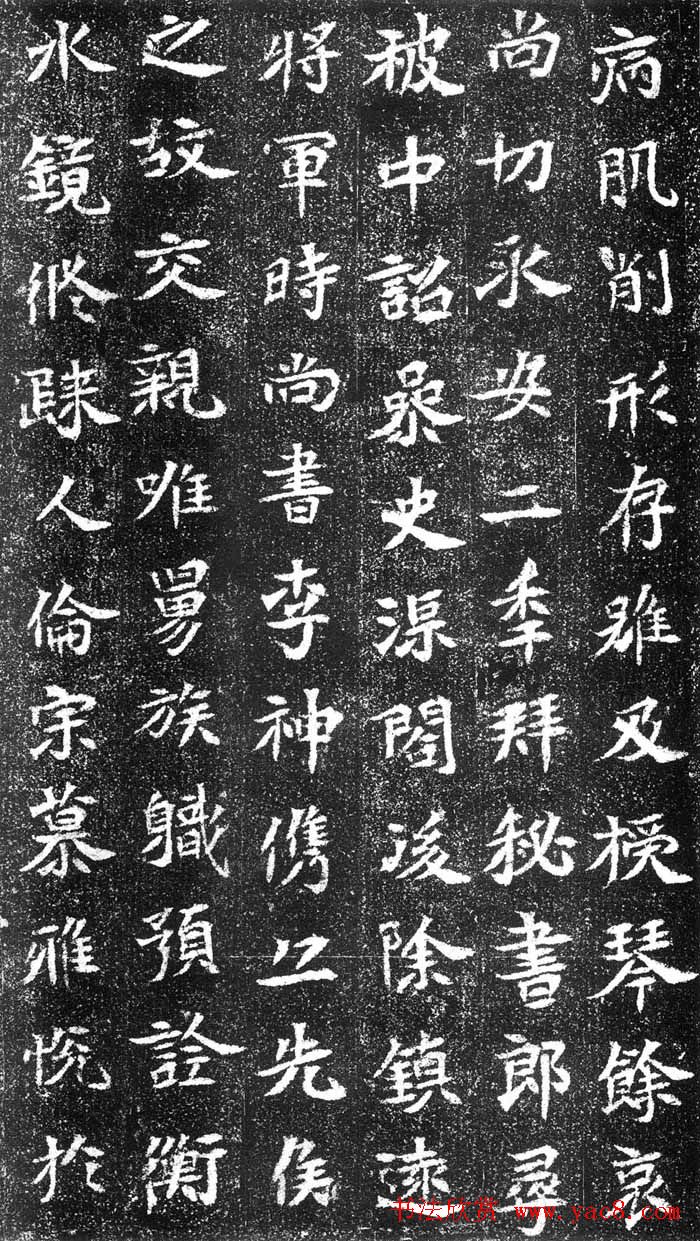 病肌削形存雖及琴餘哀
尚切永安二年拜秘書郎尋
被中詔參史渠閣後除鎮遠
將軍時尚書李神儁以先侯
之故交親唯舅族軄預詮衡
水鏡修疎人倫宗慕雅悅於
书法欣赏 www.yac8.com